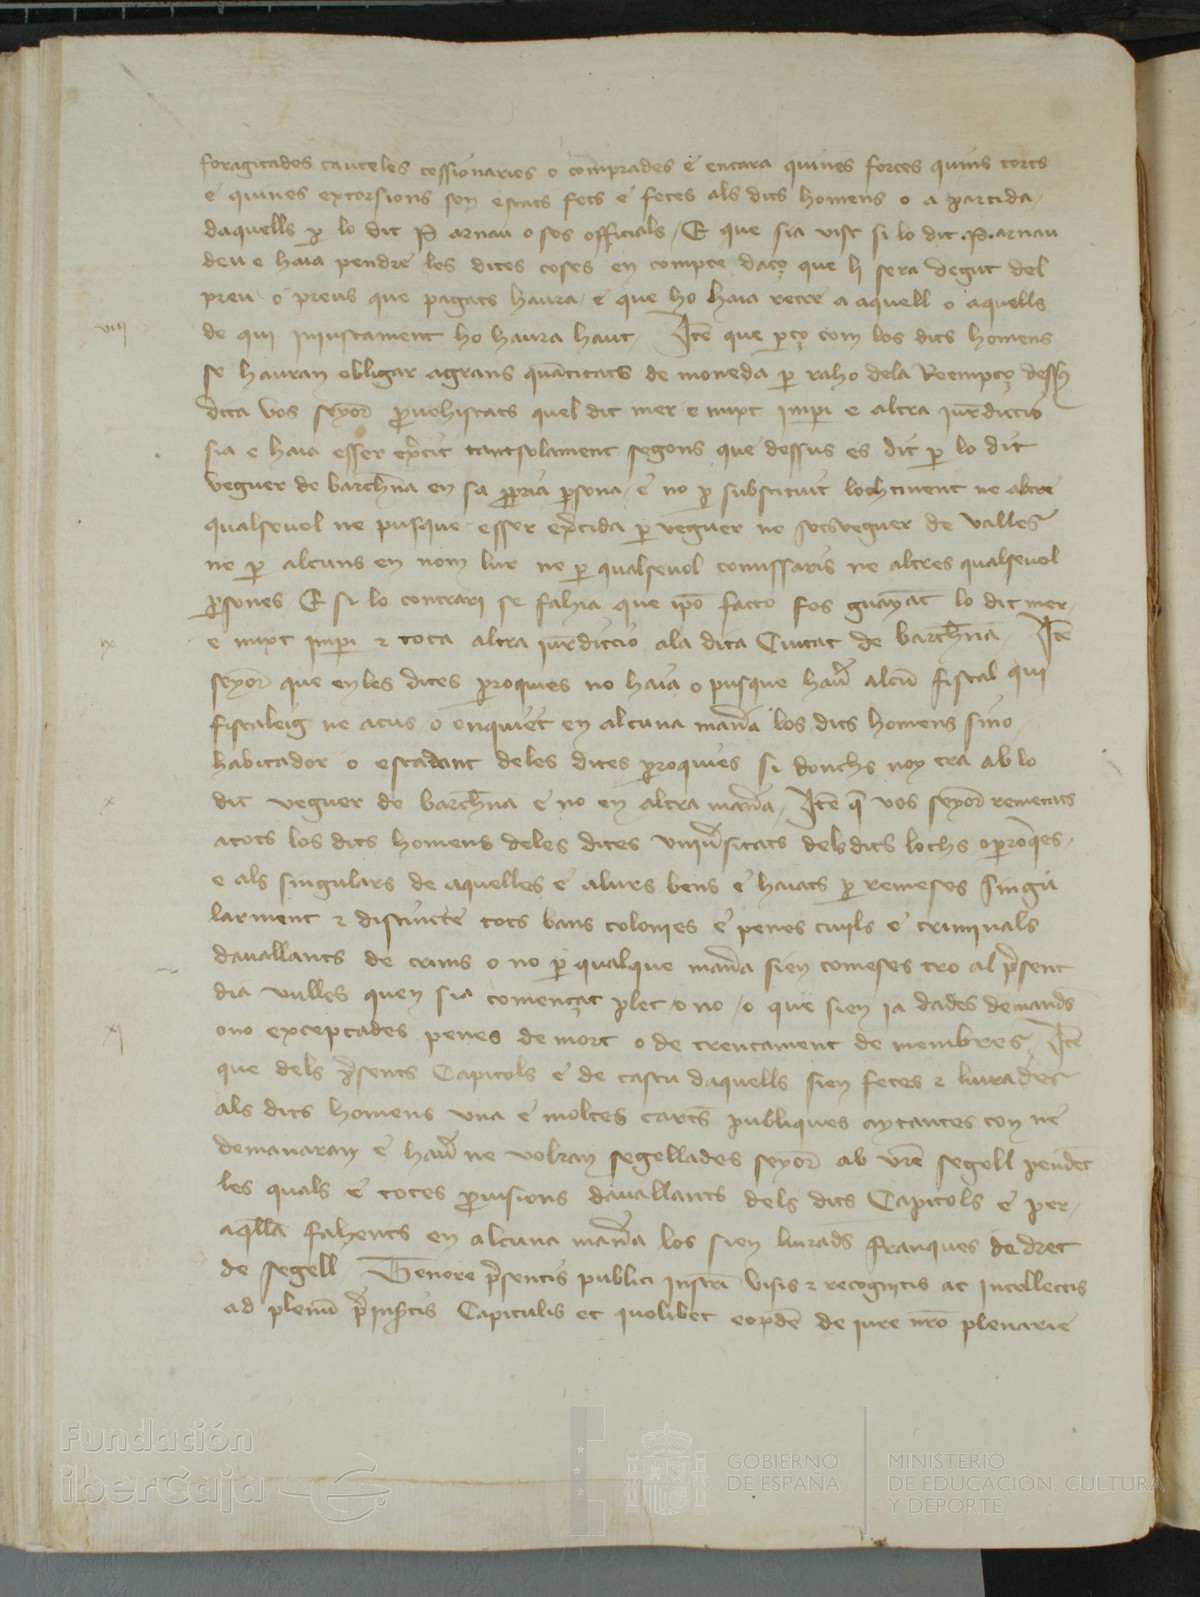 foragitades cauteles cessionaries o comprades e encara quines forces quins torts
e quines extorsions son estats fets e fetes als dits homens o a partida
daquells p lo dit P arnau o sos officials / E que sia vist si lo dit .P. arnau
deu e haia pendre les dites coses en compte daço que li sera degut del
preu o preus que pagats haura / e que ho haia retre a aquell o aquells
viii
de qui iniustament ho haura haut / Itē que p ço com los dits homens
se hauran obligar a grans quātitats de moneda p raho dela Reempço
dita vos senyor p vehiscats quel dit mer e mixt impi e altra iurdiccio
sia e haia esser exercit tantsolament segons que dessus es dit p lo dit
veguer de barchna en sa ppria psona / e no p substituit lochtinent ne altre
qualsevol ne pusque esser exercida p veguer ne sotsveguer de Valles
ne p alcuns en nom lur ne p qualsevol comissaris ne altres qualsevol
psones / E si lo contrari se fahia que ipo facto fos guayat lo dit mer /
ix
e mixt impi z tota altra iurdiccio ala dita Ciutat de barchna / Itē
senyor que en les dites proquies no haia o pusque haver alcu fiscal qui
fiscaleig ne acus o enquiet en alcuna mana los dits homens sino
habitador o estadant deles dites proquies si donchs noy era ab lo
x
dit veguer de barchna e no en altra mana / Itē q vos senyor remetats
a tots los dits homens deles dites universitats dels dits lochs o proqies /
e als singulars de aquelles e a lurs bens e haiats p remeses singu
larment z distincte tots bans colonies e penes civils e criminals
davallants de crims o no p qualque mana sien comeses tro al psent
dia vulles quen sia començat plet o no / o que sien ia dades demands
xi
o no exceptades penes de mort o de trencament de membres / Itē
que dels psents Capitols e de cascu daquells sien fetes z liurades
als dits homens una e moltes cartes publiques aytantes con ne
demanaran e haver ne volran segellades senyor ab vre segell pendet
les quals e totes pvisions davallants dels dits Capitols e per
aqlla fahents en alcuna mana los sien liurads franques de dret
de segell / Tenore psentis publici instri visis z recognitis ac intellectis
ad plenu pinstis Capitulis et quolibet eorde de iure nro plenarie
Fundación
iberCaja
GOBIERNO
DE ESPAÑA
MINISTERIO
DE EDUCACIÓN, CULTURA
Y DEPORTE